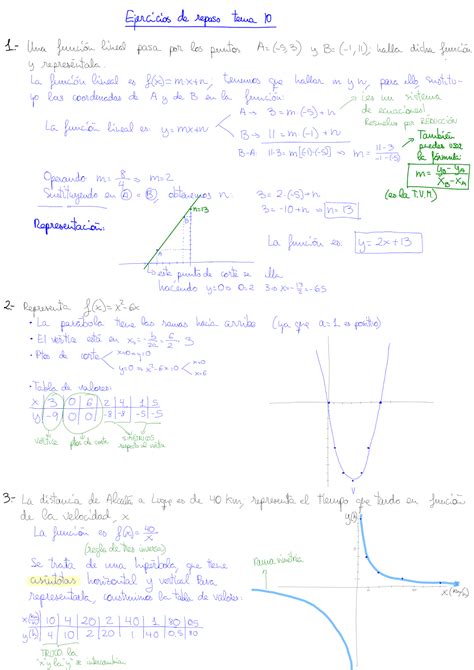 Ejercicios de repaso tema 10
1.- Una función lineal pasa por los puntos A=(-5,3) y B=(-1,11); halla dicha función
y represéntala.
La función lineal es f(x)=mx+n, tenemos que hallar m y n, para ello, sustitu-
yo las coordenadas de A y de B en la función:
La función lineal es: y=mx+n
A → 3 = m·(-5)+n
B → 11 = m·(-1)+n
B-A: 11-3 = m[(-1)-(-5)] → m = 11-3 / -1-(-5)
(es un sistema
de ecuaciones)
Resuelvo por REDUCCIÓN
También
puedes usar
la fórmula:
m = yB - yA / xB - xA
(es la T.V.M)
Operando m = 8/4 → m=2
Sustituyendo en A o B, obtenemos n:
3 = 2·(-5)+n
3 = -10+n → n=13
Representación:
n=13
La función es: y=2x+13
este punto de corte se
haciendo y=0
2.- Representa f(x)=x²-6x
• La parábola tiene las ramas hacia arriba (ya que a=1 es positivo)
• El vértice está en xv = -b/2a = 6/2 = 3
• Ptos de corte x=0 → y=0
y=0 → x²-6x=0 x=0
x=6
• Tabla de valores:
x 3 0 6 2 4 1 5
y -9 0 0 -8 -8 -5 -5
vértice ptos de corte simétricos
respecto al vértice
V
3.- La distancia de Alcalá a Lugo es de 40 km, representa el tiempo que tardo en función
de la velocidad, x
La función es f(x) = 40/x
(regla de tres inversa)
Se trata de una hipérbola, que tiene
asíntotas horizontal y vertical. Para
representarla, construimos la tabla de valores:
rama simétrica
x 10 4 20 2 40 1 80 0,5
y 4 10 2 20 1 40 0,5 80
TRUCO: la
"x" y la "y" se intercambian